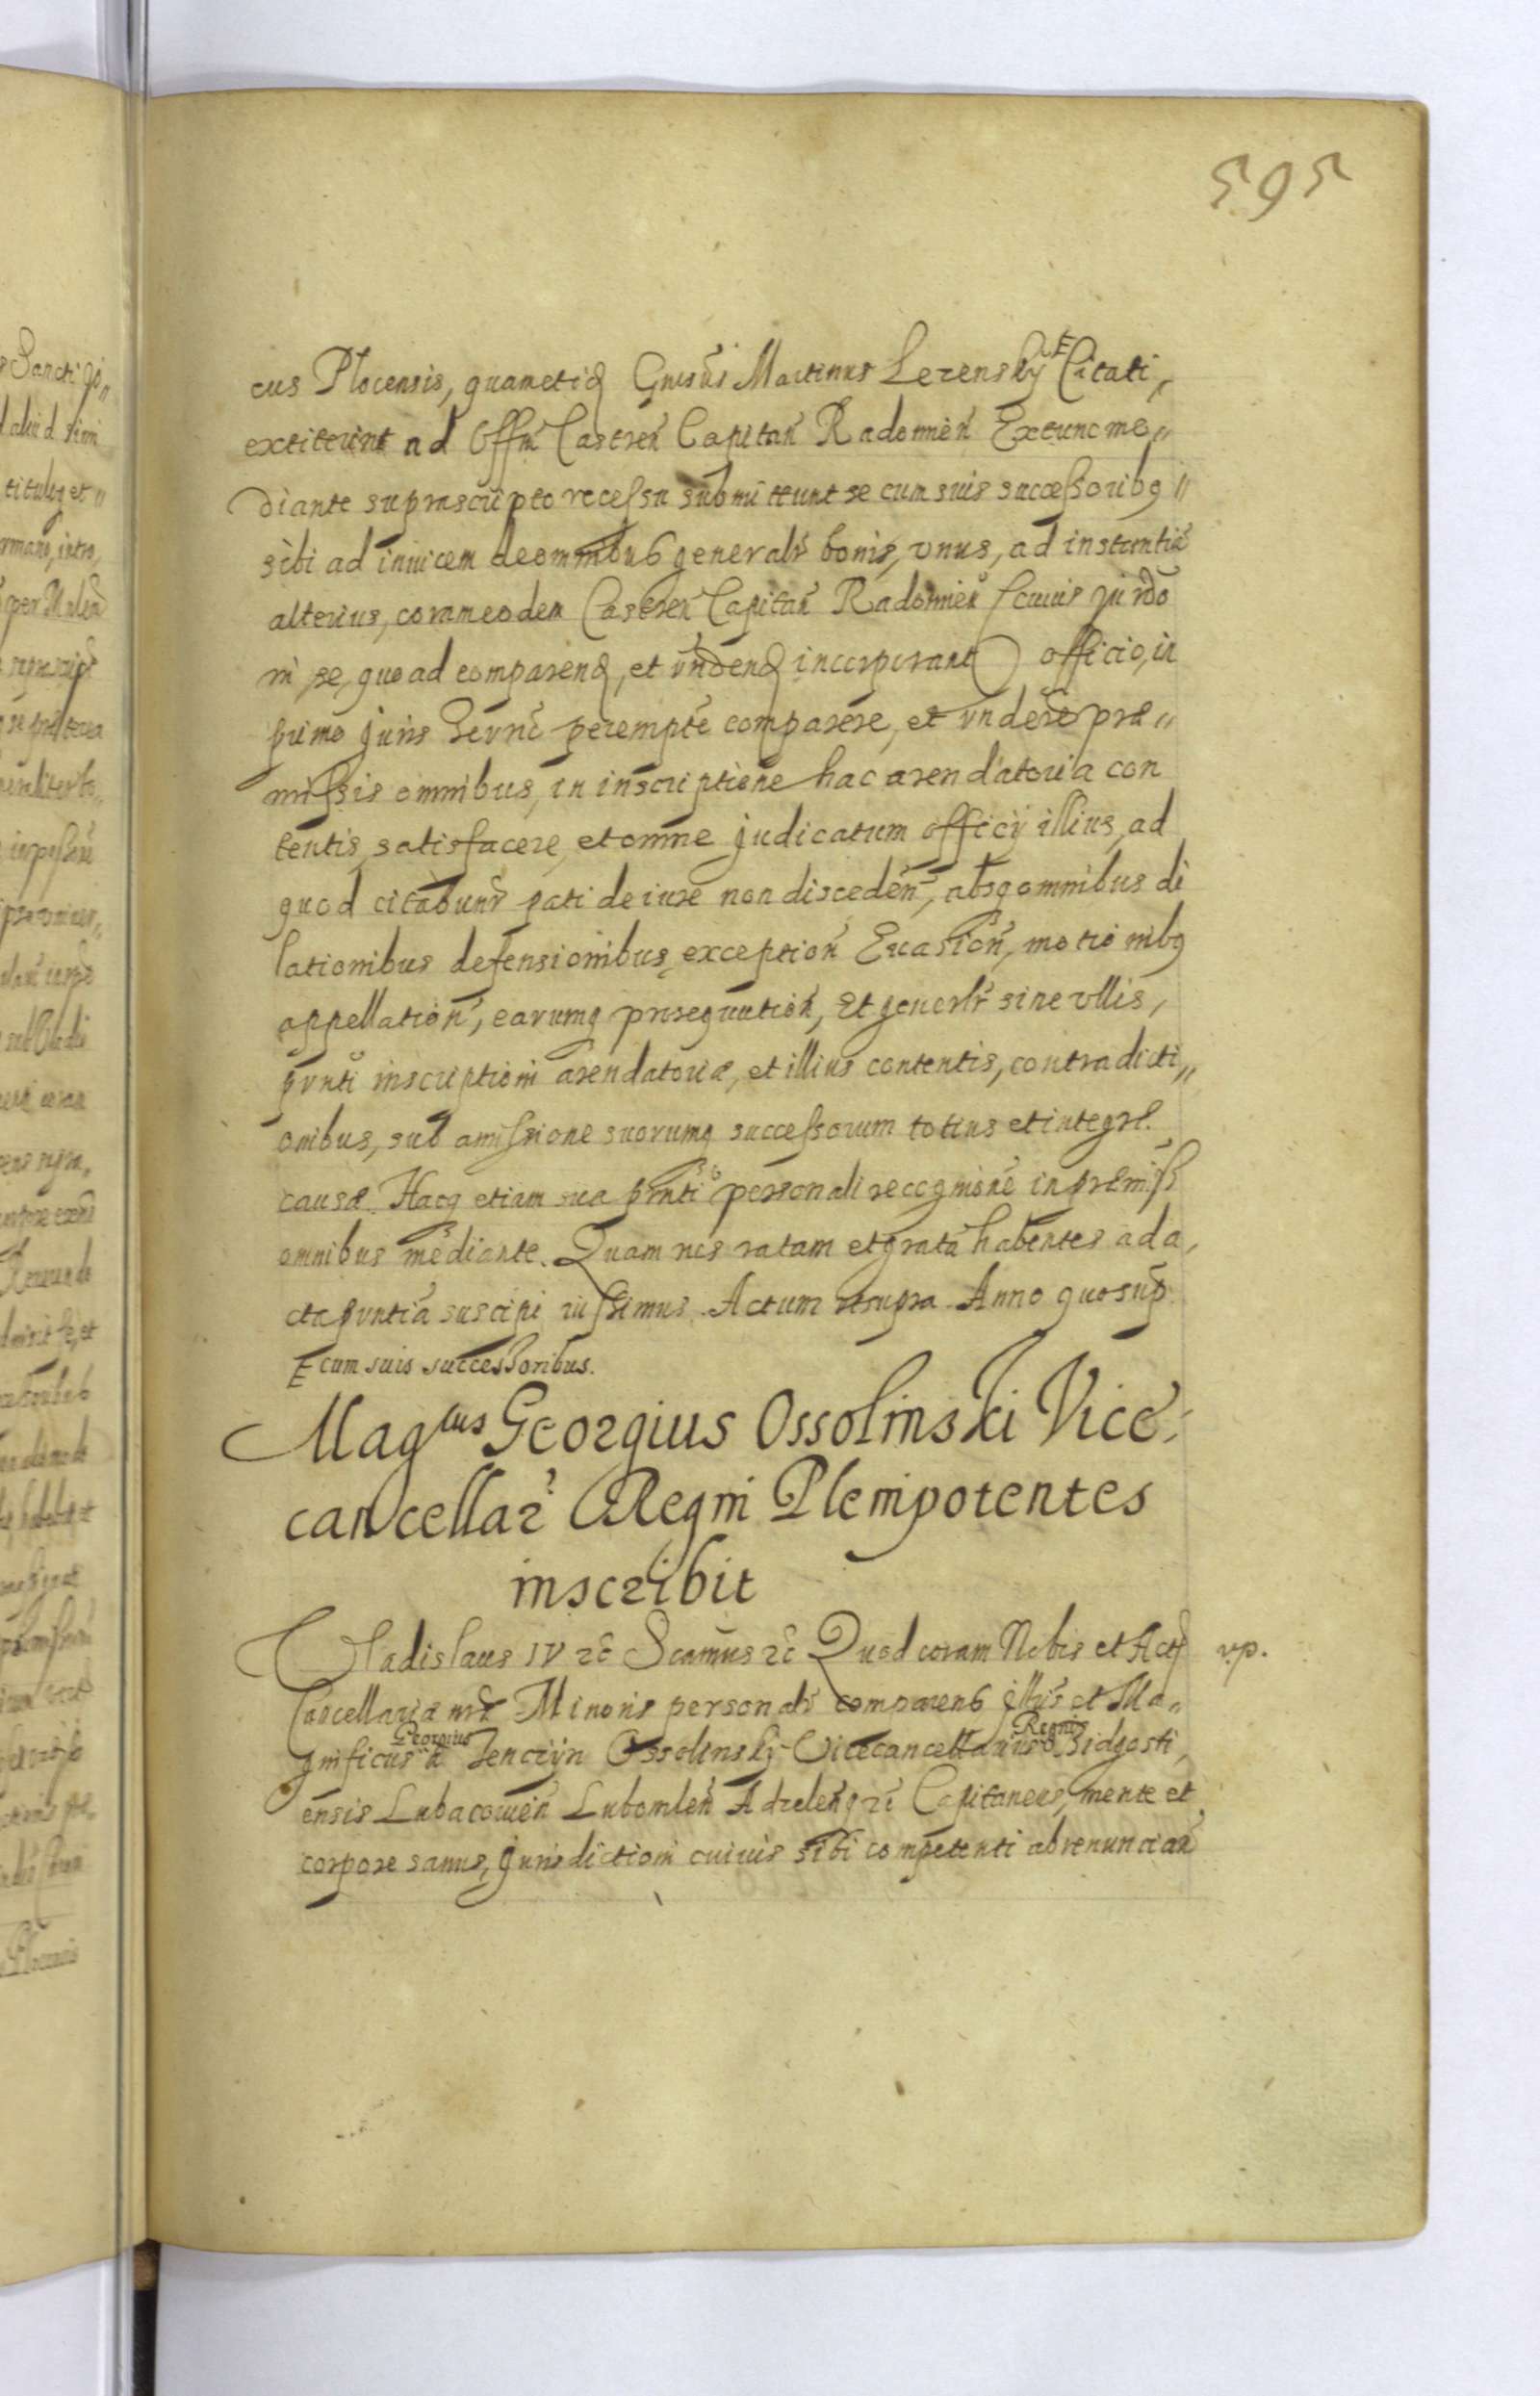 595
cus Plocensis, quametiā Gnsūs Martinus Lezensky E Citati„
extiterint ad Offm Castren̄ Capitan̄ Radomien̄ Extunc me„
diante suprascripto recessu submittunt se cum suis successoribq„
sibi ad inuicem de omnibus generalr̄ bonis, vnus, ad instantiā
alterius, coram eodem Castren̄ Capitan̄ Radomien̄ /cuius jurdo
ni se, quo ad comparend, et rn̄dend incorporant) officio, in
primo juris Termō perempte comparere, et rndere præ„
missis omnibus, in inscriptione hac arendatoria con
tentis, satisfacere, et omne judicatum officij illius, ad
quod citabunr̄ pati de iure non disceden̄, absq omnibus di
lationibus defensionibus, exception̄ Euasion̄, motionibq
appellation̄, earumq prosequution̄, Et generlr̄ sine vllis,
pnti inscriptioni arendatoriæ, et illius contentis, contradicti„
onibus, sub amissione suorumq successorum totius et integræ
causæ. Hacq etiam sua pnti personali recognione in præmiss
omnibus mediante. Quam nos ratam et gratā habentes ad a,
cta pntia suscipi iussimus. Actum vt supra Anno quo sup.
E cum suis successoribus.
Magcus Georgius Ossolinski Vice:
cancellar̄ Regni Plenipotentes
inscribit
Vladislaus IV rc̄ Scamus rc̄ Quod coram Nobis et Actis v.p.
Cancellariæ nr̄æ Minoris personalr̄ comparens Illris et Ma„
gnificus Georgius a Tenczyn Ossolinskj Vicecancellarius Regni Bidgosti,
ensis Lubacouien̄ Lubomlen̄ Adzelenq rc̄ Capitaneus, mente et
corpore sanus, Jurisdictioni cuiuis sibi competenti abrenuncian̄